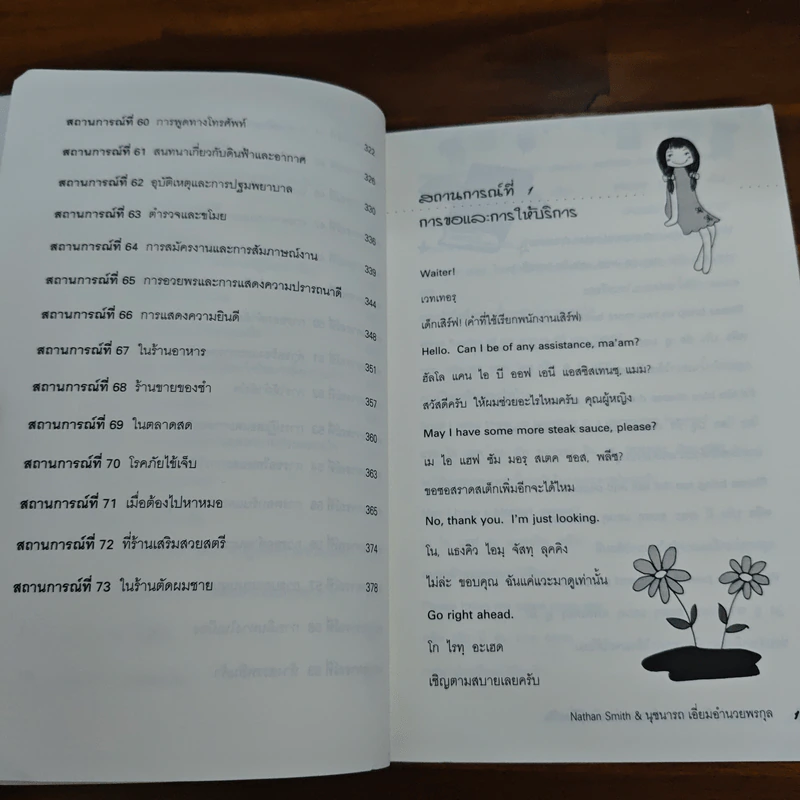 สถานการณ์ที่ 60 การพูดทางโทรศัพท์ 322
สถานการณ์ที่ 61 สนทนาเกี่ยวกับดินฟ้าและอากาศ 326
สถานการณ์ที่ 62 อุบัติเหตุและการปฐมพยาบาล 330
สถานการณ์ที่ 63 ตำรวจและขโมย 336
สถานการณ์ที่ 64 การสมัครงานและการสัมภาษณ์งาน 339
สถานการณ์ที่ 65 การอวยพรและการแสดงความปรารถนาดี 344
สถานการณ์ที่ 66 การแสดงความยินดี 348
สถานการณ์ที่ 67 ในร้านอาหาร 351
สถานการณ์ที่ 68 ร้านขายของชำ 357
สถานการณ์ที่ 69 ในตลาดสด 360
สถานการณ์ที่ 70 โรคภัยไข้เจ็บ 363
สถานการณ์ที่ 71 เมื่อต้องไปหาหมอ 365
สถานการณ์ที่ 72 ที่ร้านเสริมสวยสตรี 374
สถานการณ์ที่ 73 ในร้านตัดผมชาย 378
สถานการณ์ที่ 1
การขอและการให้บริการ
Waiter!
เวทเทอรฺ
เด็กเสิร์ฟ! (คำที่ใช้เรียกพนักงานเสิร์ฟ)
Hello. Can I be of any assistance, ma'am?
ฮัลโล แคน ไอ บี ออฟ เอนี แอสซิสเทนซฺ, แมม?
สวัสดีครับ ให้ผมช่วยอะไรไหมครับ คุณผู้หญิง
May I have some more steak sauce, please?
เม ไอ แฮฟ ซัม มอรฺ สเตค ซอส, พลีซ?
ขอซอสราดสเต็กเพิ่มอีกจะได้ไหม
No, thank you. I'm just looking.
โน, แธงคิว ไอมฺ จัสทฺ ลุคคิง
ไม่ล่ะ ขอบคุณ ฉันแค่แวะมาดูเท่านั้น
Go right ahead.
โก ไรทฺ อะเฮด
เชิญตามสบายเลยครับ
Nathan Smith & นุชนารถ เอี่ยมอำนวยพรกุล 1